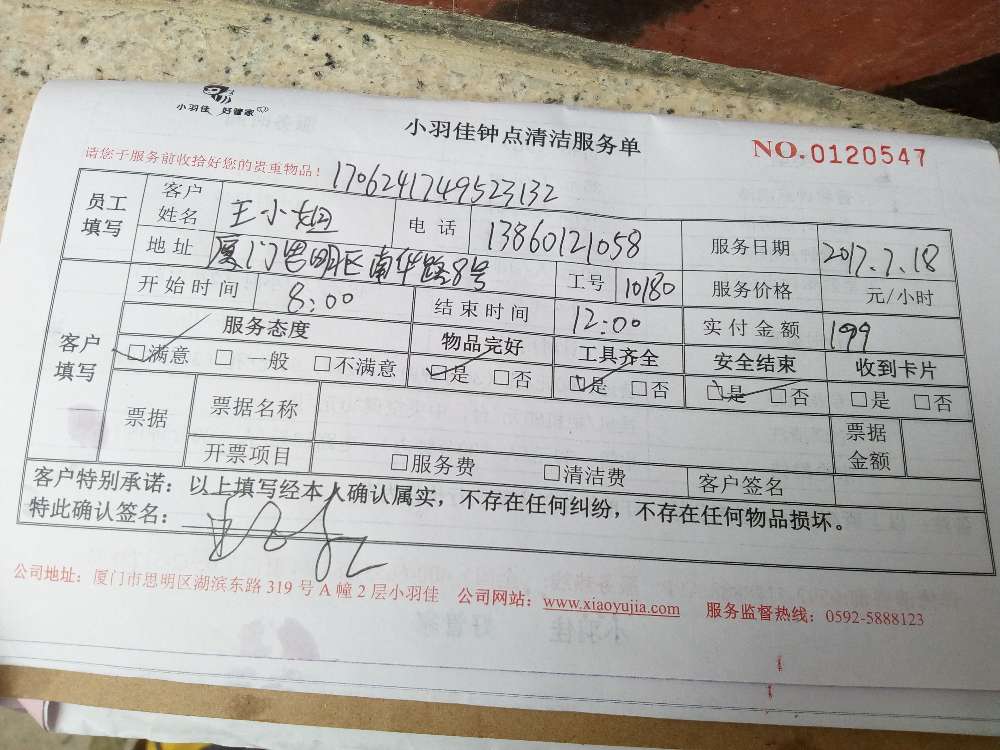 小羽佳 好管家
小羽佳钟点清洁服务单
NO.0120547
请您于服务前收拾好您的贵重物品!
1706241749523132
员工填写 客户姓名 王小 电话 13860121058 服务日期 2017.7.18
地址 厦门思明区南华路8号 工号 10180 服务价格 元/小时
客户填写 开始时间 8:00 结束时间 12:00 实付金额 199
服务态度 物品完好 工具齐全 安全结束 收到卡片
☑满意 □一般 □不满意 ☑是 □否 ☑是 □否 ☑是 □否 □是 □否
票据 票据名称 票据金额
开票项目 □服务费 □清洁费 客户签名
客户特别承诺:以上填写经本人确认属实,不存在任何纠纷,不存在任何物品损坏。
特此确认签名:
公司地址:厦门市思明区湖滨东路 319 号 A 幢 2 层小羽佳 公司网站:www.xiaoyujia.com 服务监督热线:0592-5888123